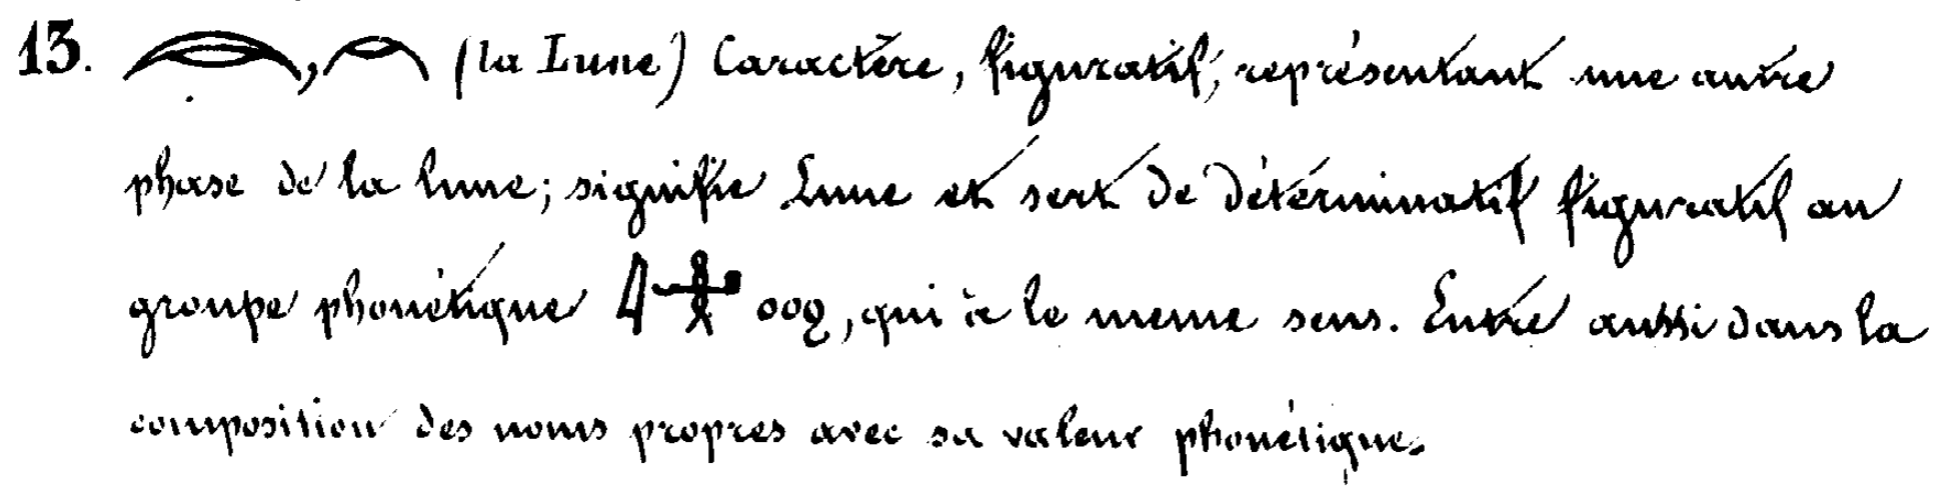 13. 𓇹, 𓇹 (la Lune) Caractère, figuratif, représentant une autre
phase de la lune; signifie Lune et sert de déterminatif figuratif au
groupe phonétique ⲟⲟϩ, qui à le meme sens. Entre aussi dans la
composition des noms propres avec sa valeur phonétique.